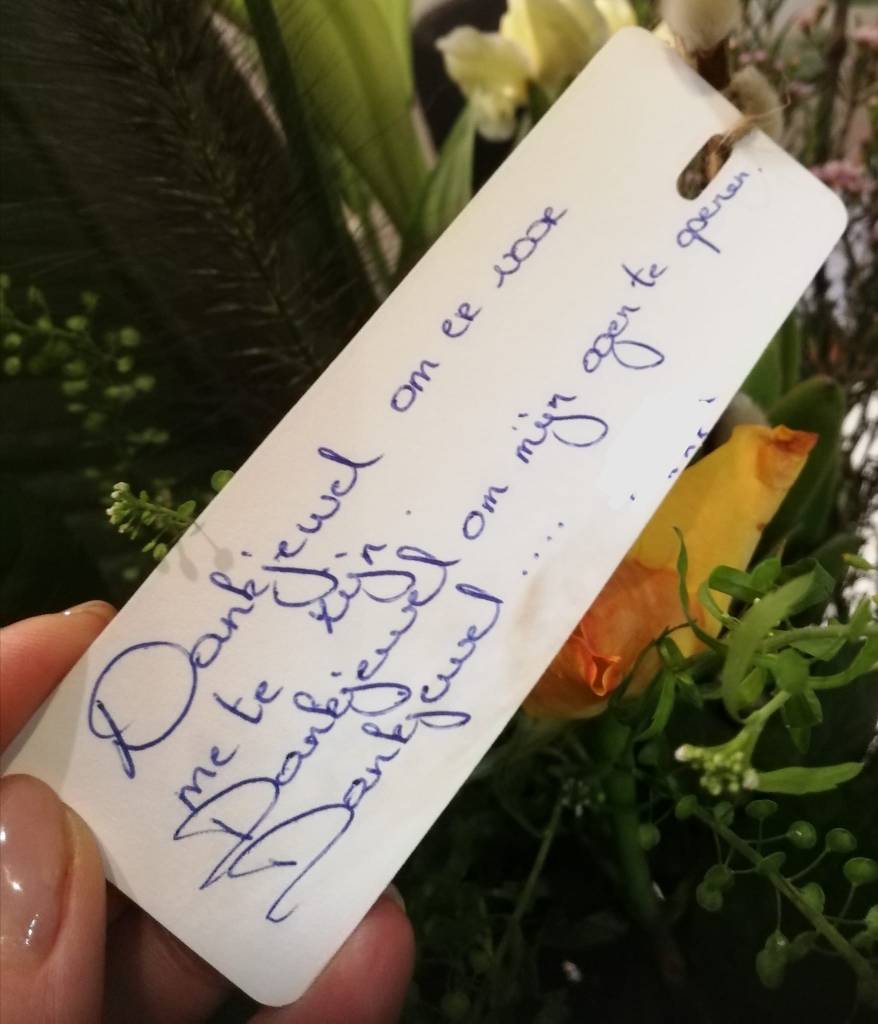 Dankjewel om er voor
me te zijn.
Dankjewel om mijn ogen te openen.
Dankjewel ....